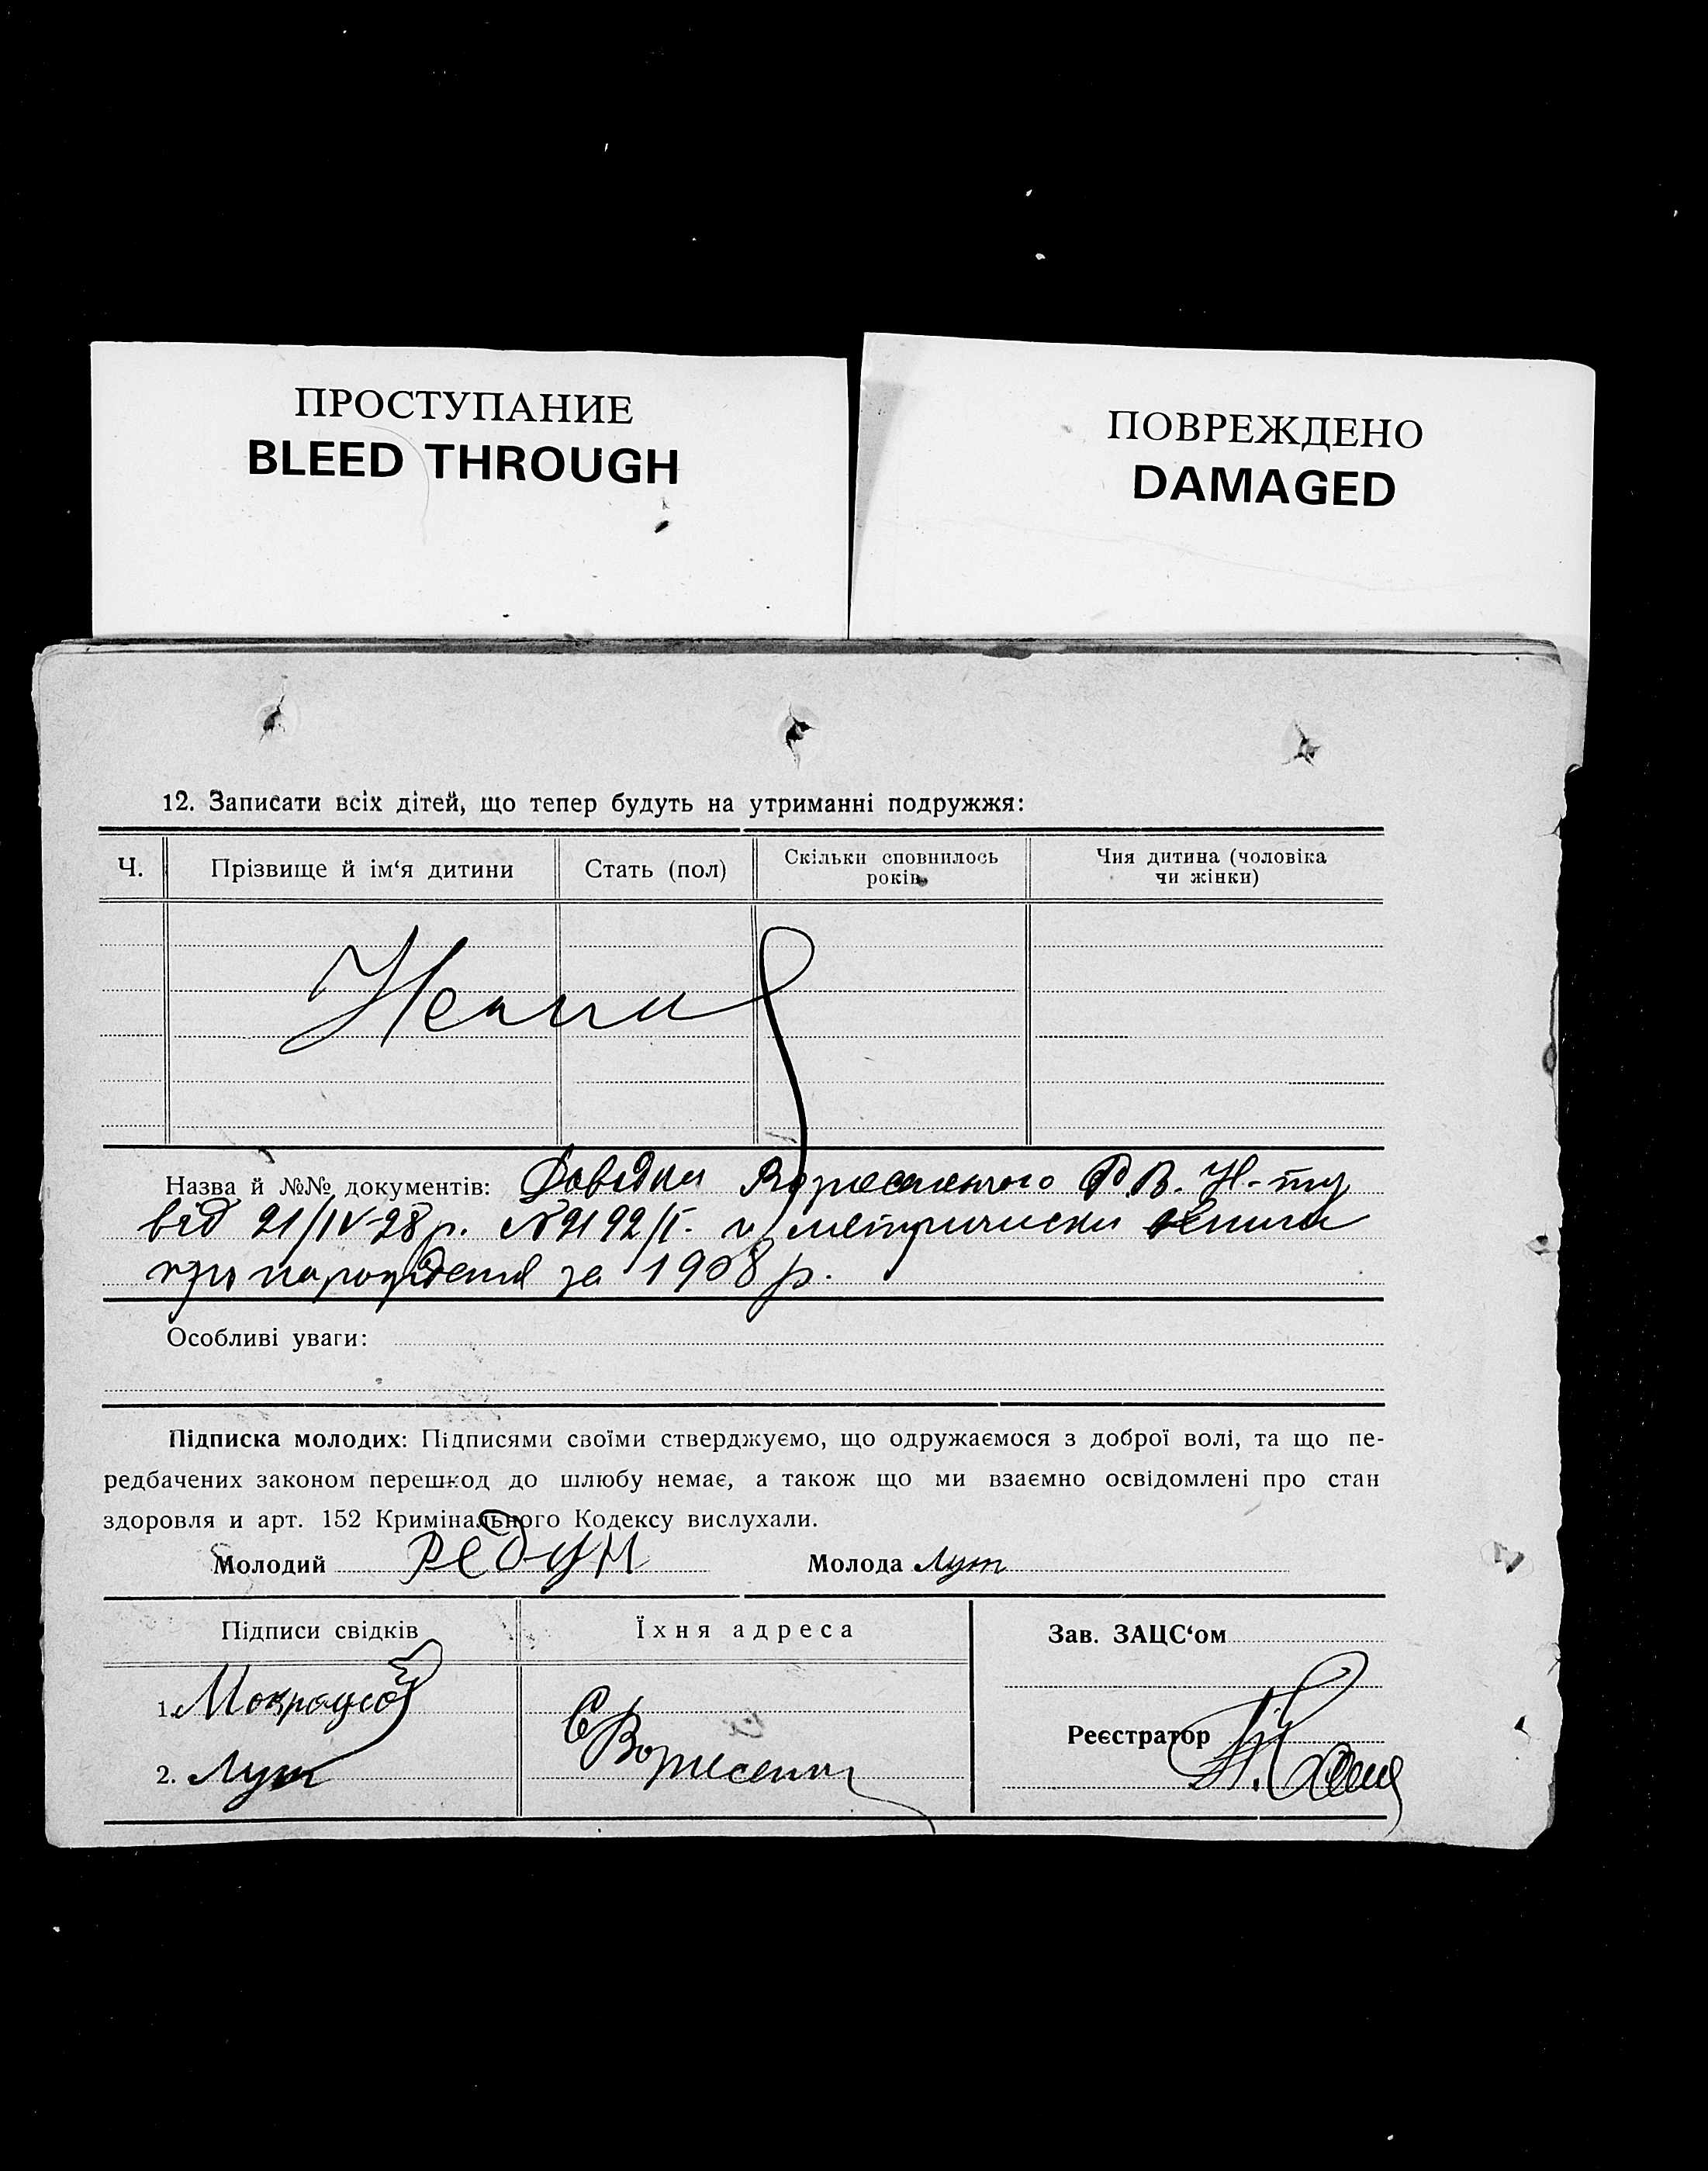 ПРОСТУПАНИЕ
BLEED THROUGH
ПОВРЕЖДЕНО
DAMAGED
12. Записати всіх дітей, що тепер будуть на утриманні подружжя:
Ч.
Прізвище й ім‘я дитини
Стать (пол)
Скільки сповнилось
років
Чия дитина (чоловіка
чи жінки)
Назва й №№ документів: Довідки Р.В.
від 21/IV-28 р. N2192/I. и метрически книга
про народження за 1908 р.
Особливі уваги:
Підписка молодих: Підписями своїми стверджуємо, що одружаємося з доброї волі, та що пе-
редбачених законом перешкод до шлюбу немає, а також що ми взаємно освідомлені про стан
здоровля и арт. 152 Кримінального Кодексу вислухали.
Молодий Редун Молода Лут
Підписи свідків
Їхня адреса
Зав. ЗАЦС‘ом
1.
2. Лут
С
Реєстратор